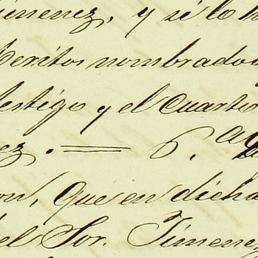 imenez, y si lo h
Peritos nombrados
testigo y el Cuarto
ez. == 6. a
on, que en dicha
del Sor. Jimenez